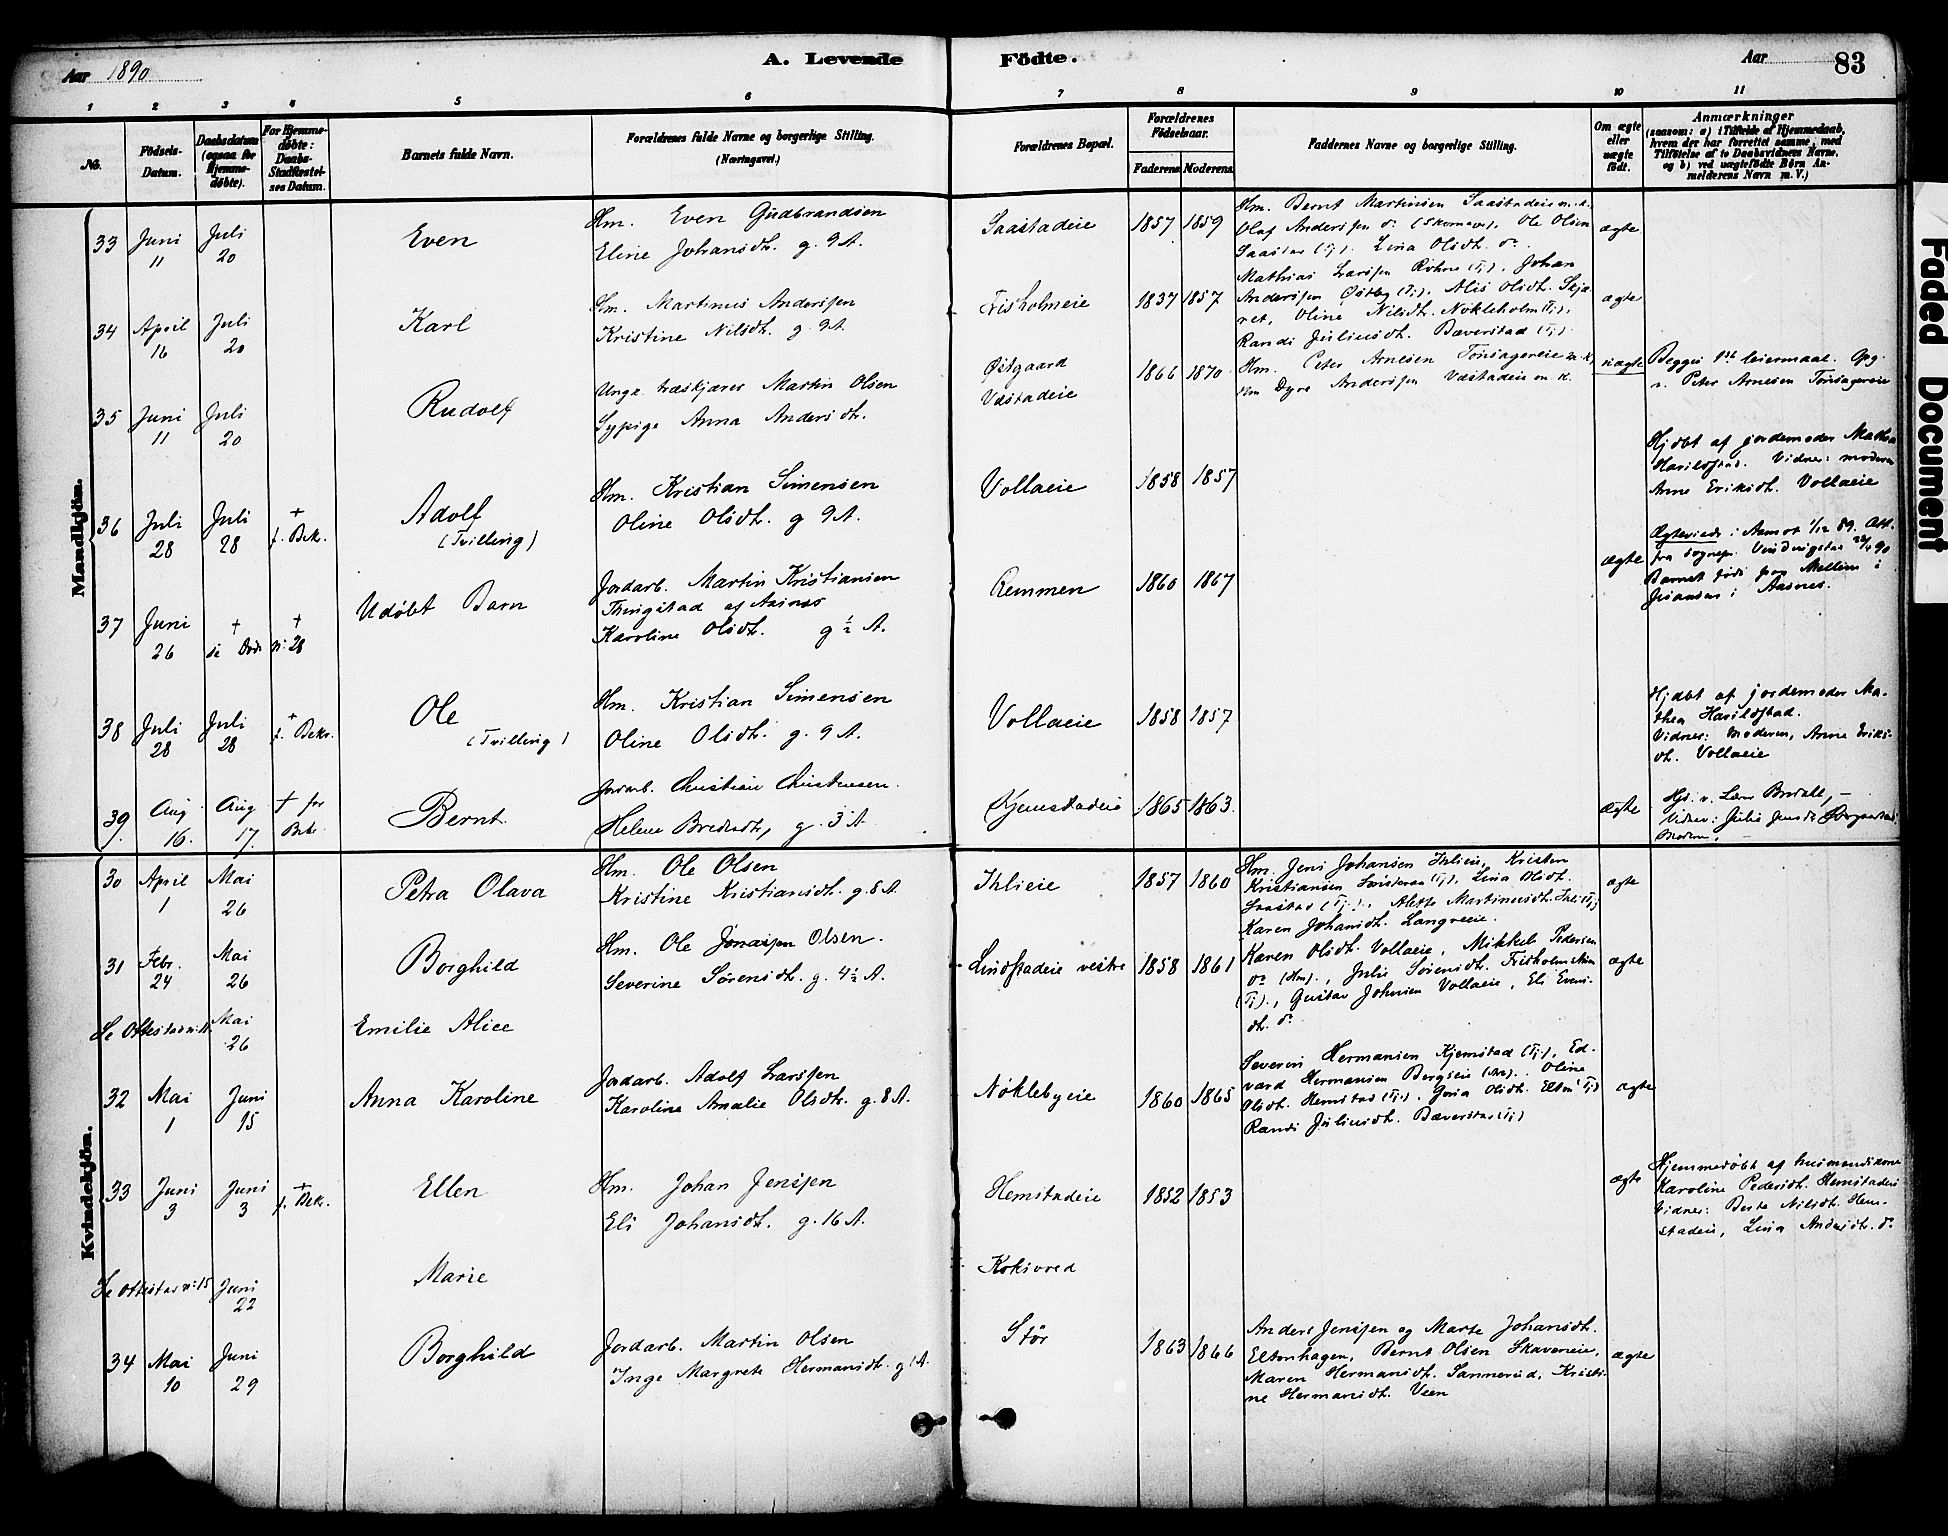 Aar 1890
A. Levende Födte.
Aar
83
1 2 3 4 5 6 7 8 9 10 11
No.
Födsels-Datum.
Daabsdatum (ogsaa for Hjemme-döbte).
For Hjemme-döbte: Daabs-Stadfæstel-ses Datum.
Barnets fulde Navn.
Forældrenes fulde Navne og borgerlige Stilling. (Næringsvei.)
Forældrenes Bopæl.
Forældrenes Födselsaar.
Faderens Moderens
Faddernes Navne og borgerlige Stilling.
Om ægte eller uægte født.
Anmærkninger
(saasom: a) i Tilfælde af Hjemmedaab,
hvem der har forrettet samme, med
Tilföielse af to Daabsvidners Navne,
og b) ved uægtefödte Börn An-
melderens Navn m. V.)
Mandkjön.
33 Juni 11 Juli 20 Even
Hm. Even Gudbrandsen
Eline Johansdt. g. 9 A.
Saastadeie 1857 1859
Hm. Bernt Martinsen Saastadeie m. k.
Olaf Anderssen do (Skomager), Ole Olsen
Saastad (Tj). Lina Olsdt. do
ægte
34 April 16 Juli 20 Karl
Hm. Martinus Anderssen
Kristine Nilsdt. g. 9 A.
Fisholmeie 1837 1857
Mathias Larssen Röhne (Tj), Johan
Anderssen Østby (Tj), Alis Olsdt. Skjæ-
ret, Oline Nilsdt. Nökleholm (Tj)
Randi Juliusdt. Bæverstad (Tj)
ægte
35 Juni 11 Juli 20 Rudolf
Ungk. træskjærer Martin Olsen
Sypige Anna Andersdt.
Østgaard
Vestadeie
1866 1870
Hm. Peter Arnesen Tonsagereie m. k.
Hm Dyre Anderssen Vestadeie m k.
uægte
Begges 1ste leiermaal. Opg.
v. Peter Arnesen Tonsagereie
36 Juli 28 Juli 28 + f. Bek. Adolf (Tvilling)
Hm. Kristian Simensen
Oline Olsdt. g 9 A.
Vollaeie 1858 1857
Hjdöbt af jordemoder Mathea
Harildstad. Vidner: moderen
Anne Eriksdt. Vollaeie
37 Juni 26 + se Döde + n: 28 Udöbt Barn
Jordarb. Martin Kristiansen
Thingstad af Aasnes
Karoline Olsdt. g ½ A.
Remmen 1860 1867
ægte
Ægteviede i Aamot 1/12 89. Att.
fra sognepr.
Barnet födt paa Mellem
i Aasnes.
38 Juli 28 Juli 28 + f. Bekr. Ole (Tvilling)
Hm. Kristian Simensen
Oline Olsdt. g. 9 A.
Vollaeie 1858 1857
Hjdöbt af jordemoder Ma-
thea Harildstad.
Vidner: Moderen, Anne Eriks-
dt. Vollaeie
39 Aug 16. Aug 17. + för Bek. Bernt
Jordarb. Christian Christensen.
Helene g. 3 A
Kjemstadeie 1865 1863.
ægte
Hjd. v. Lars Bredall, –
Vidner: Julie Jensdt
Moderen. –
Kvindekjön.
30 April 1 Mai 26 Petra Olava
Hm. Ole Olsen
Kristine Kristiansdt. g. 8 A.
Ihlieie 1857 1860
Hm. Jens Johansen Ihlieie, Kristen
Kristiansen (Tj), Lina Olsdt.
Saastad (Tj), Alette Martinusdt. Ihle (Tj)
Karen Johansdt. Langreeie.
ægte
31 Febr. 24 Mai 26 Borghild
Hm. Ole Jonassen Olsen.
Severine Sörensdt. g. 4½ A.
Lindstadeie vestre 1858 1861
Karen Olsdt. Vollaeie, Mikkel Pedersen
do (Hm)., Julie Sörensdt. Frisholm
(Tj)., Gustav Johnsen Vollaeie, Eli Evens-
dt. do
ægte
Se Ottestad n: 11. Mai 26 Emilie Alice
32 Mai 1 Juni 15 Anna Karoline
Jordarb. Adolf Larssen
Karoline Amalie Olsdt. g. 8 A.
Nöklebyeie 1860 1865
Severin Hermansen Kjemstad (Tj), Ed-
vard Hermansen Bergseie, Oline
Olsdt. Hemstad (Tj), Olsdt. (Tj)
Randi Juliusdt. Bæverstad (Tj)
ægte
33 Juni 3 Juni 3 + f. Bek. Ellen
Hm. Johan Jenssen
Eli Johansdt. g. 16 A.
Hemstadeie 1852 1853
ægte
Hjemmedöbt af husmandskone
Karoline Pedersdt. Hemstadeie
Vidner: Berte Nilsdt. Hem-
stadeie, Lina Andersdt. do
Se Ottestad n: 15 Juni 22 Marie Koksvred
34 Mai 10 Juni 29 Borghild
Jordarb. Martin Olsen
Inge Margrete Hermansdt. g 1 A.
Stör 1863 1866
Anders Jenssen og Marte Johansdt.
Eltonhagen, Bernt Olsen Skavereie,
Maren Hermansdt. Sannerud, Kristi-
ne Hermansdt. Veen
ægte
Faded Document